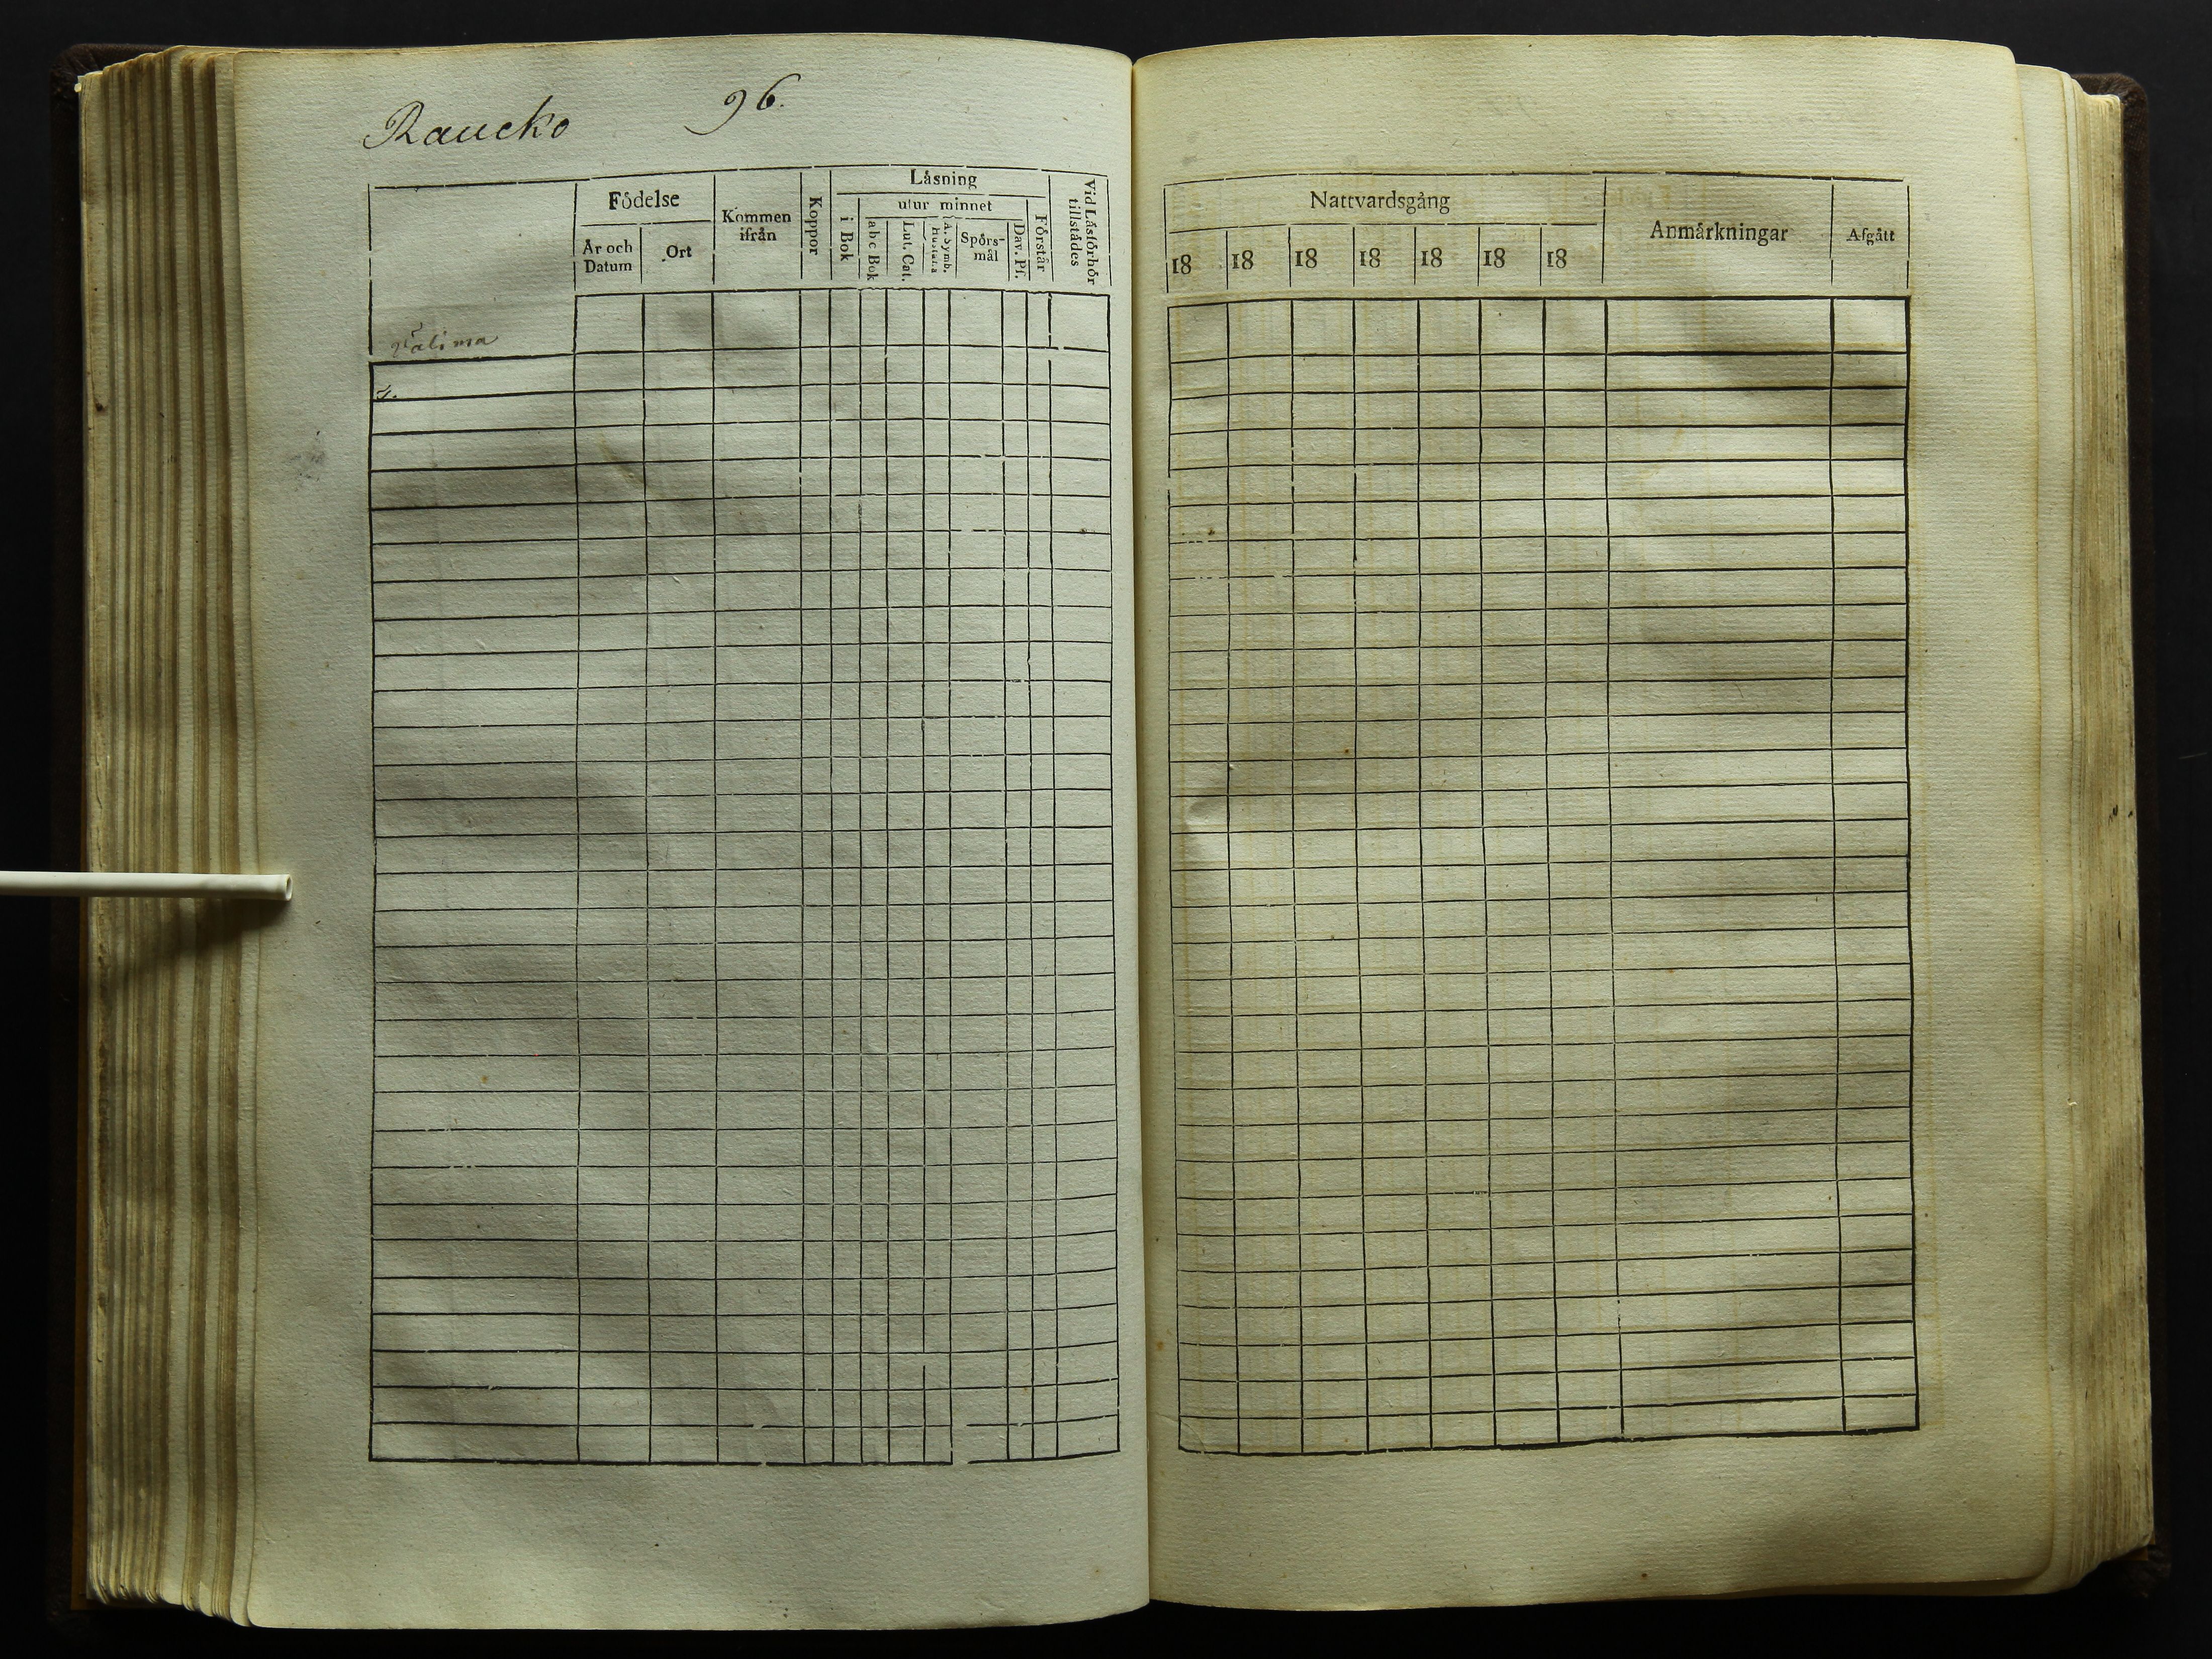 Raucko 96.
Födelse
År och Datum
Ort
Kommen ifrån
Koppor
Läsning
i Bok
utur minnet
abc Bok
Lut. Cat.
A. Symb. Hustafla
Spörs-
mål
Dav. Ps.
Förstår
Vid Läsförhör tillstädes
Nattvardsgång
18 18 18 18 18 18 18
Anmärkningar
Afgått
Välima
4.